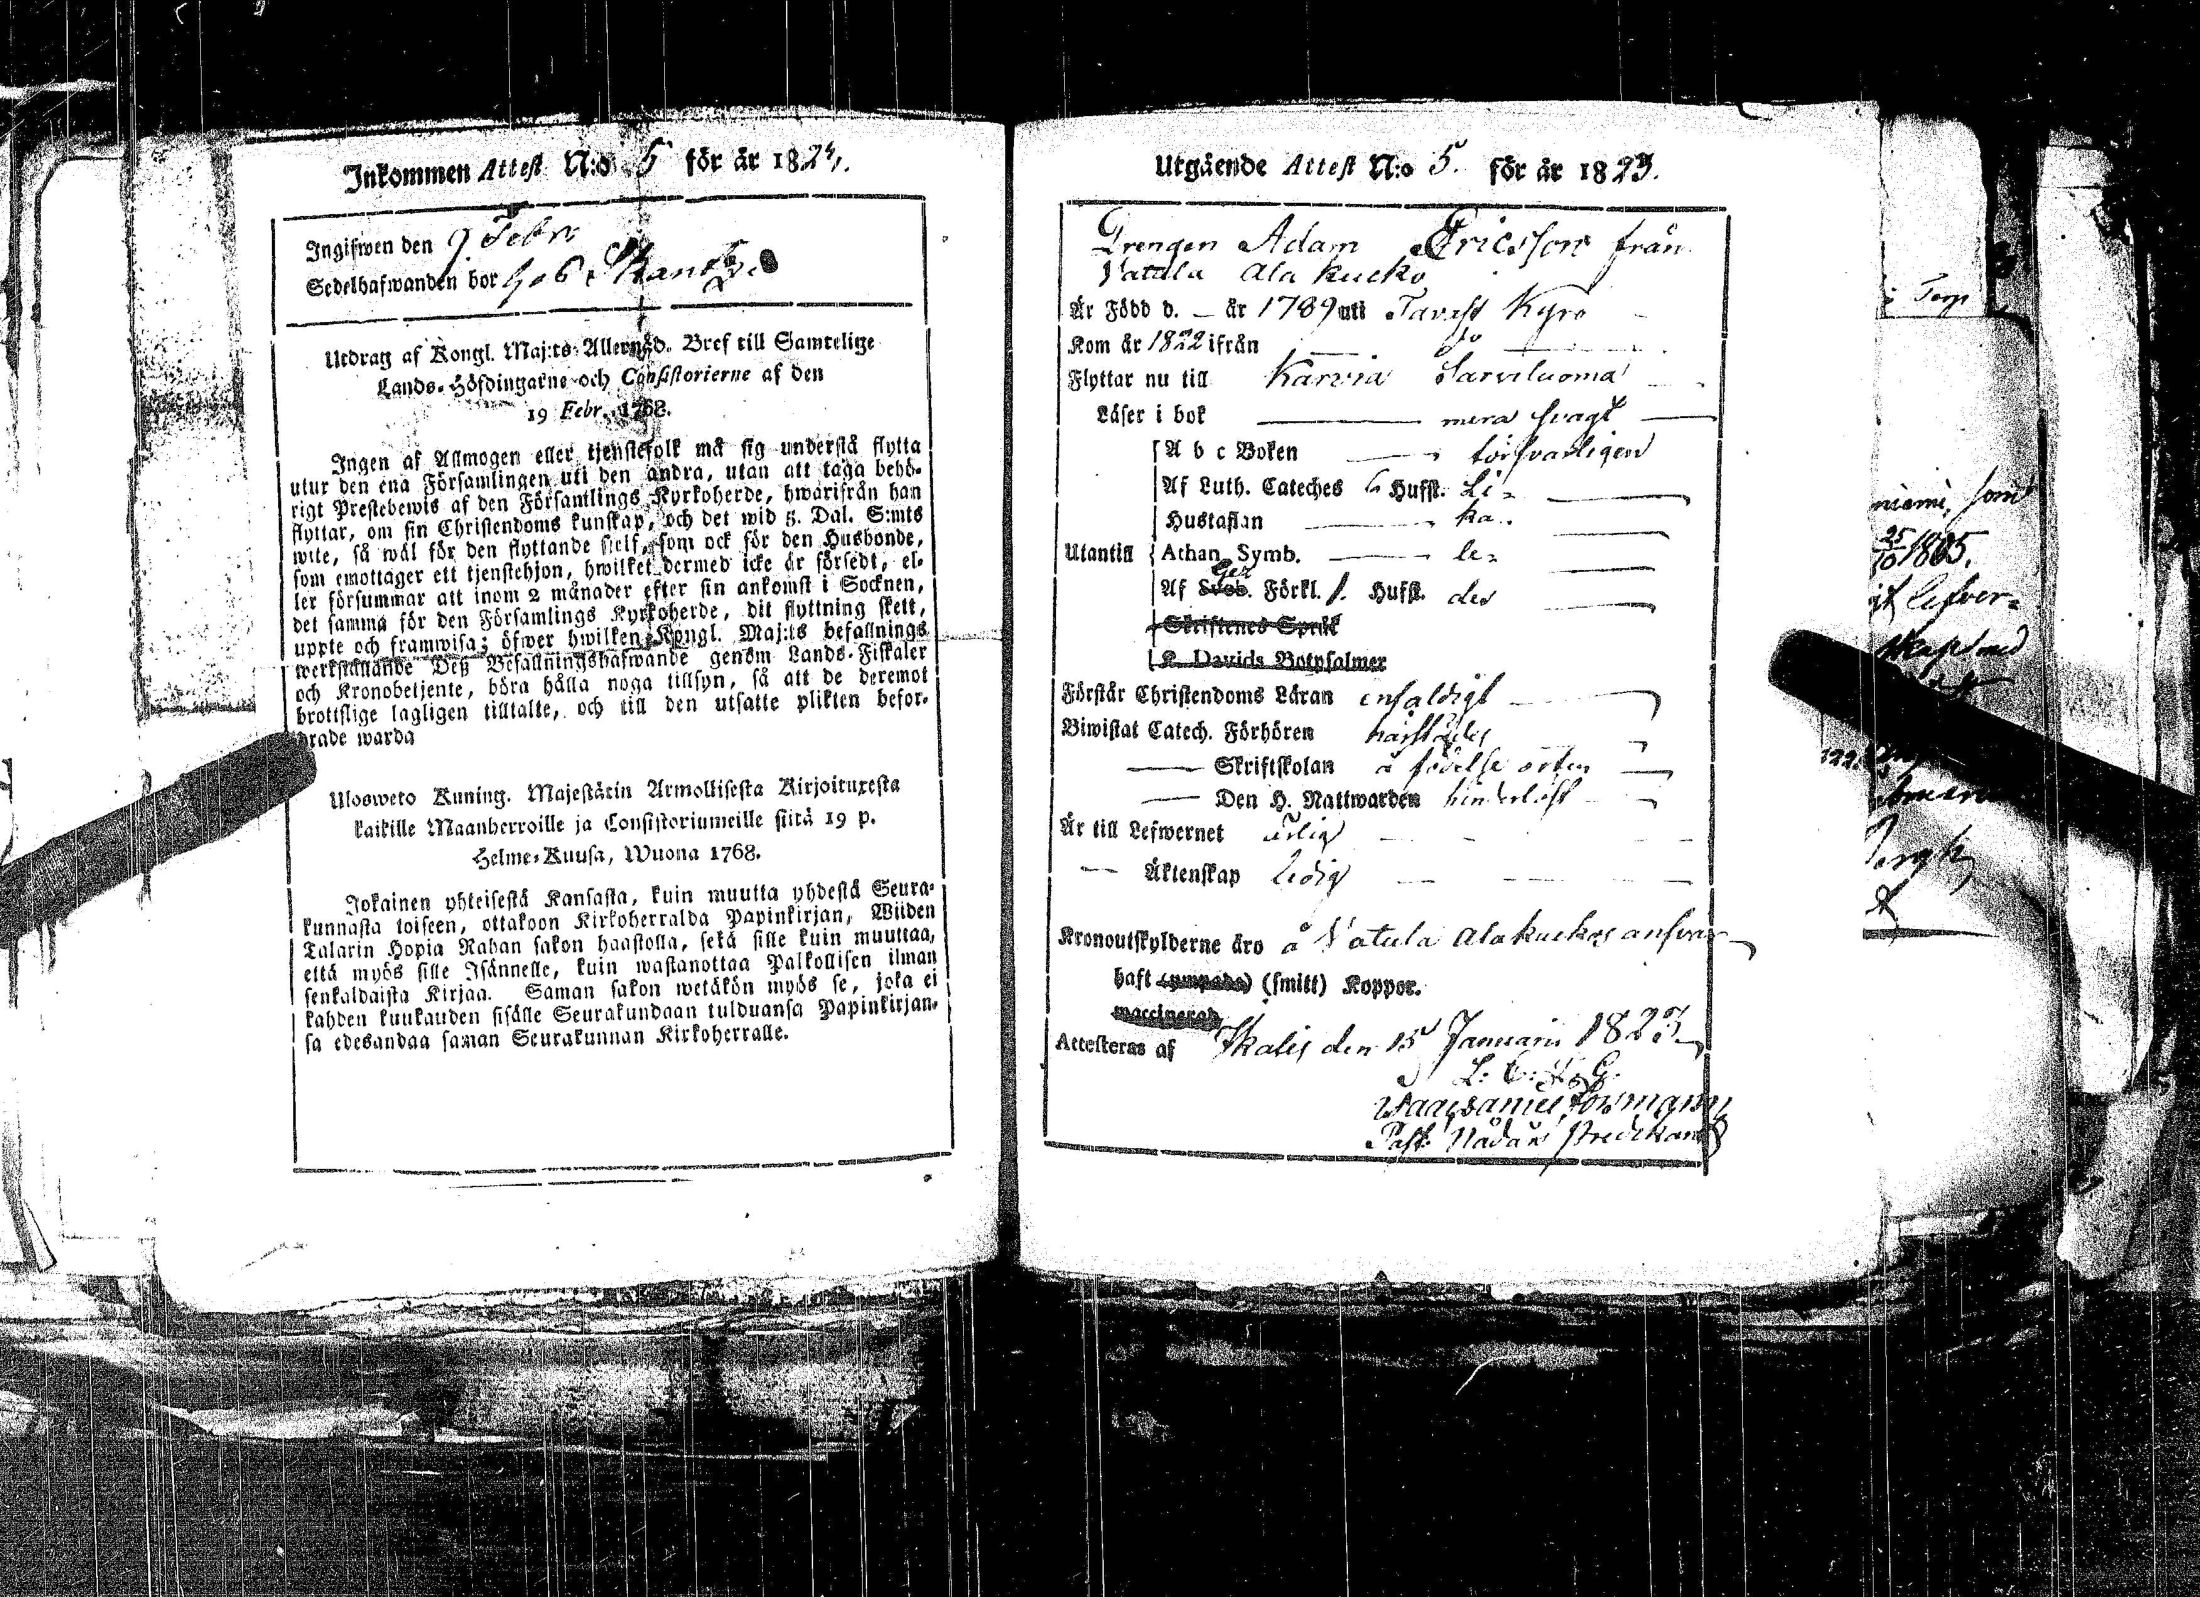 Inkommen Attest N:o 5 för år 1824.
Ingifwen den 9 Febr
Sedelhafwanden bor
Utdrag af Kongl. Maj:ts Allernåd. Bref till Samtelige
Lands-Höfdingarne och Consistorierne af den
19 Febr. 1768.
Ingen af Allmogen eller tjenstefolk må sig understå flytta
utur den ena Församlingen uti den andra, utan att taga behö-
rigt Prestebewis af den Församlings Kyrkoherde, hwarifrån han
flyttar, om sin Christendoms kunskap, och det wid 5. Dal. S:mts
wite, så wäl för den flyttande sielf, som ock för den Husbonde,
som emottager ett tjenstehjon, hwilket dermed icke är försedt, el-
ler försummar att inom 2 månader efter sin ankomst i Socknen,
det samma för den Församlings Kyrkoherde, dit flyttning skett,
uppte och framwisa; öfwer hwilken Kongl. Maj:ts befallnings
werkställande Deß Befallningshafwande genom Lands-Fiskaler
och Kronobetjente, böra hålla noga tillsyn, så att de deremot
brottslige lagligen tilltalte, och till den utsatte plikten befor-
drade warda
Ulosweto Kuning. Majestätin Armollisesta Kirjoituxesta
kaikille Maanherroille ja Consistoriumeille siitä 19 p.
Helme-Kuusa, Wuona 1768.
Jokainen yhteisestä Kansasta, kuin muutta yhdestä Seura-
kunnasta toiseen, ottakoon Kirkoherralda Papinkirjan, Wiiden
Talarin Hopia Rahan sakon haastolla, sekä sille kuin muuttaa,
että myös sille Isännelle, kuin wastanottaa Palkollisen ilman
senkaldaista Kirjaa. Saman sakon wetäkön myös se, joka ei
kahden kuukauden sisälle Seurakundaan tulduansa Papinkirjan-
sa edesandaa saman Seurakunnan Kirkoherralle.
Utgående Attest N:o 5. för år 1823.
Drengen Adam Ericsson från
Vatula Ala kucko
Är Född d. — år 1789 uti Tavast Kyro
Kom år 1822 ifrån — do —
Flyttar nu till Karvia Sarviluoma
Läser i bok — mera svagt —
Utantill
A b c Boken — försvarligen
Af Luth. Cateches 6 Hufst. Li-
Hustaflan — ka-
Athan. Symb. — le-
Af Sveb. Förkl. 1. Hufst. des
Skriftenes Språk
K. Davids Botpsalmer
Förstår Christendoms Läran enfaldigt
Biwistat Catech. Förhören härstädes
— Skriftskolan å födelse orten
— Den H. Nattwarden hinderlöst
Är till Lefwernet ärlig
— Äktenskap ledig
Kronoutskylderne äro å Vatula Alakuckos answar
haft (ympade) (smitt) Koppor.
vaccinerad
Attesteras af Ikalis den 15 Januarii 1823
Past. Nådårs Predikant